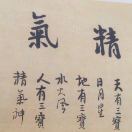 精氣
天有三寶
日月星
地有三寶
水火風
人有三寶
精氣神